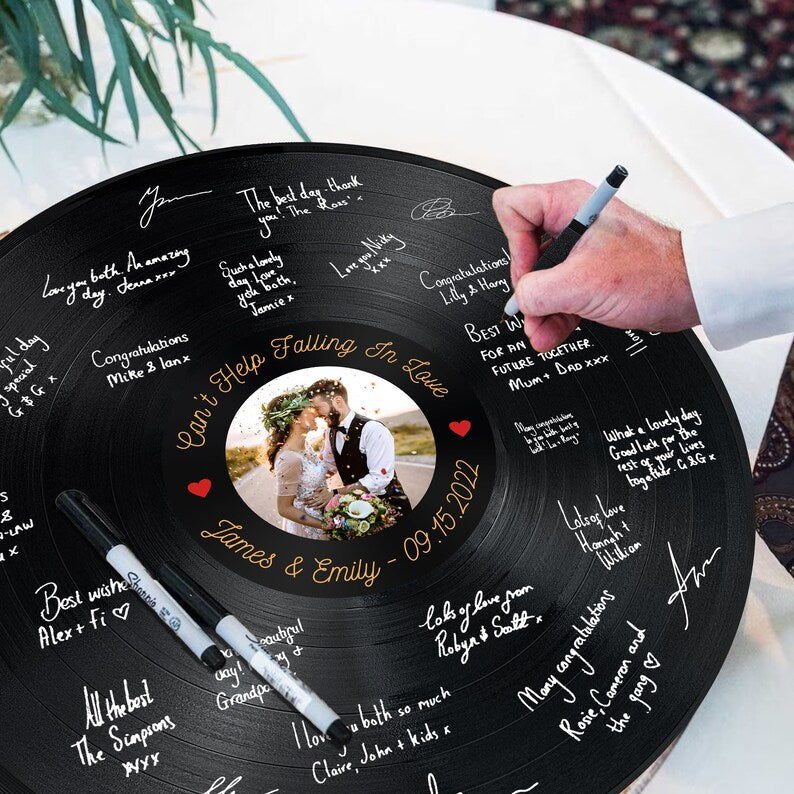 The best day thank
you! The Ross' x
Love you both. An amazing
day. Jenna xxx
Such a lovely
day Love
you both,
Jamie x
Love you, Nicky
xxx
Congratulations!
Lilly & Harry
Congratulations
Mike & Ian x
day
special
G & G x
BEST
FOR AN
FUTURE TOGETHER.
MUM + DAD XXX
Can't Help Falling In Love
James & Emily - 09.15.2022
Many congratulations
to you both.
What a lovely day.
Good luck for the
rest of your lives
together. G & G x
Lots of Love
Hannah +
William
s &
-LAW
x
Best wishes
Alex + Fi ♡
Sharpie
beautiful
day!
Grandpa
Lots of love from
Robyn & Scott x
Many congratulations
Rosie, Cameron and
the gang ♡
All the best
The Simpsons
xxxx
I love you both so much
Claire, John + kids x